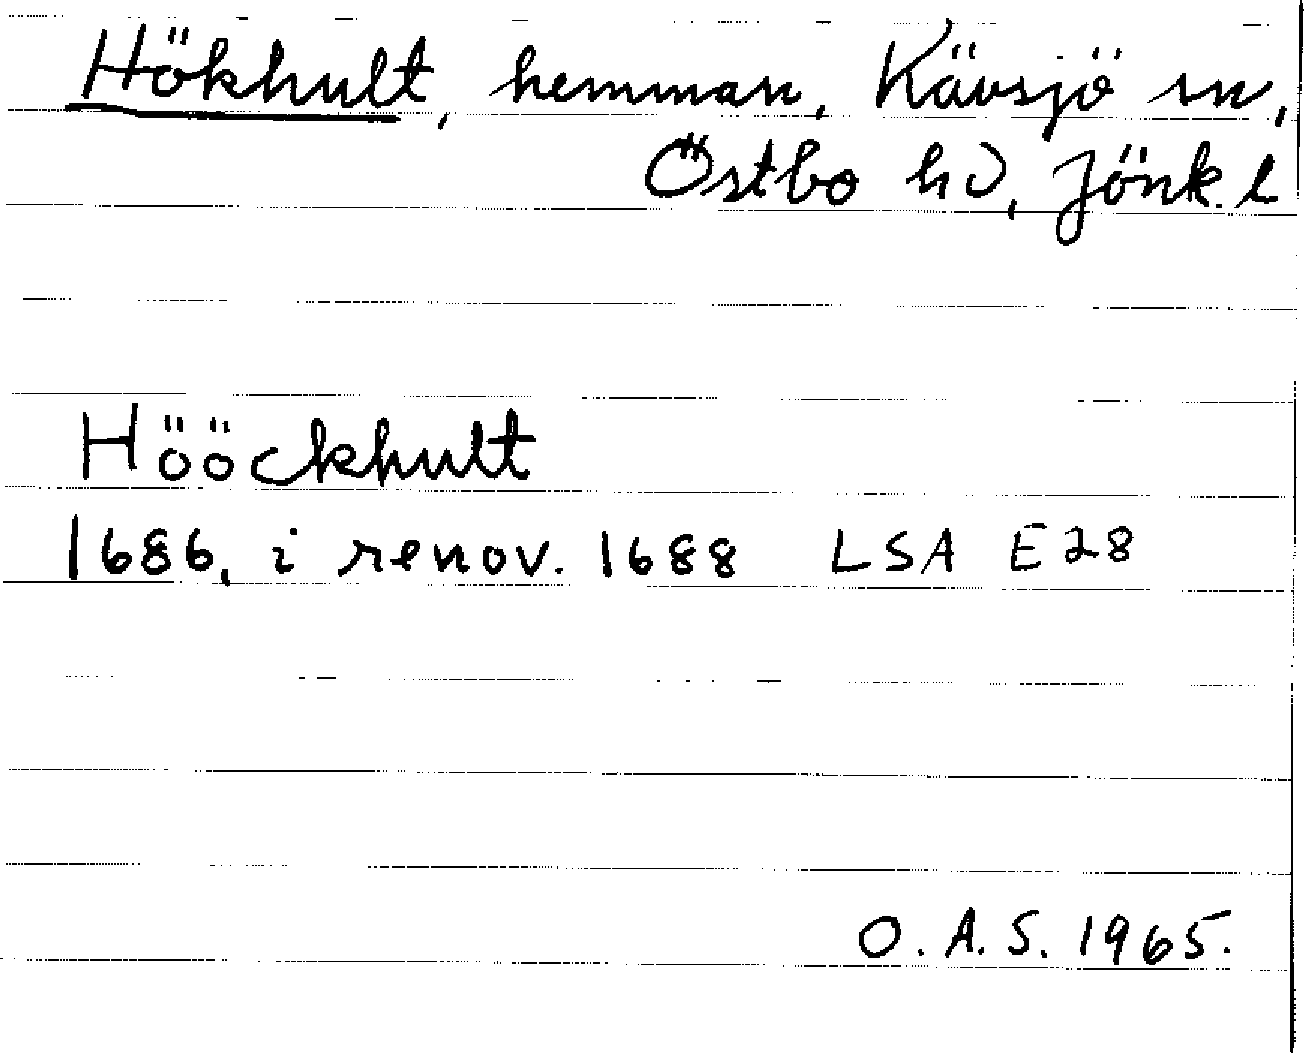 Hökhult, hemman, Kävsjö sn,
Östbo hd, Jönk. l
Hööckhult
1686, i renov. 1688 LSA E28
O. A. S. 1965.